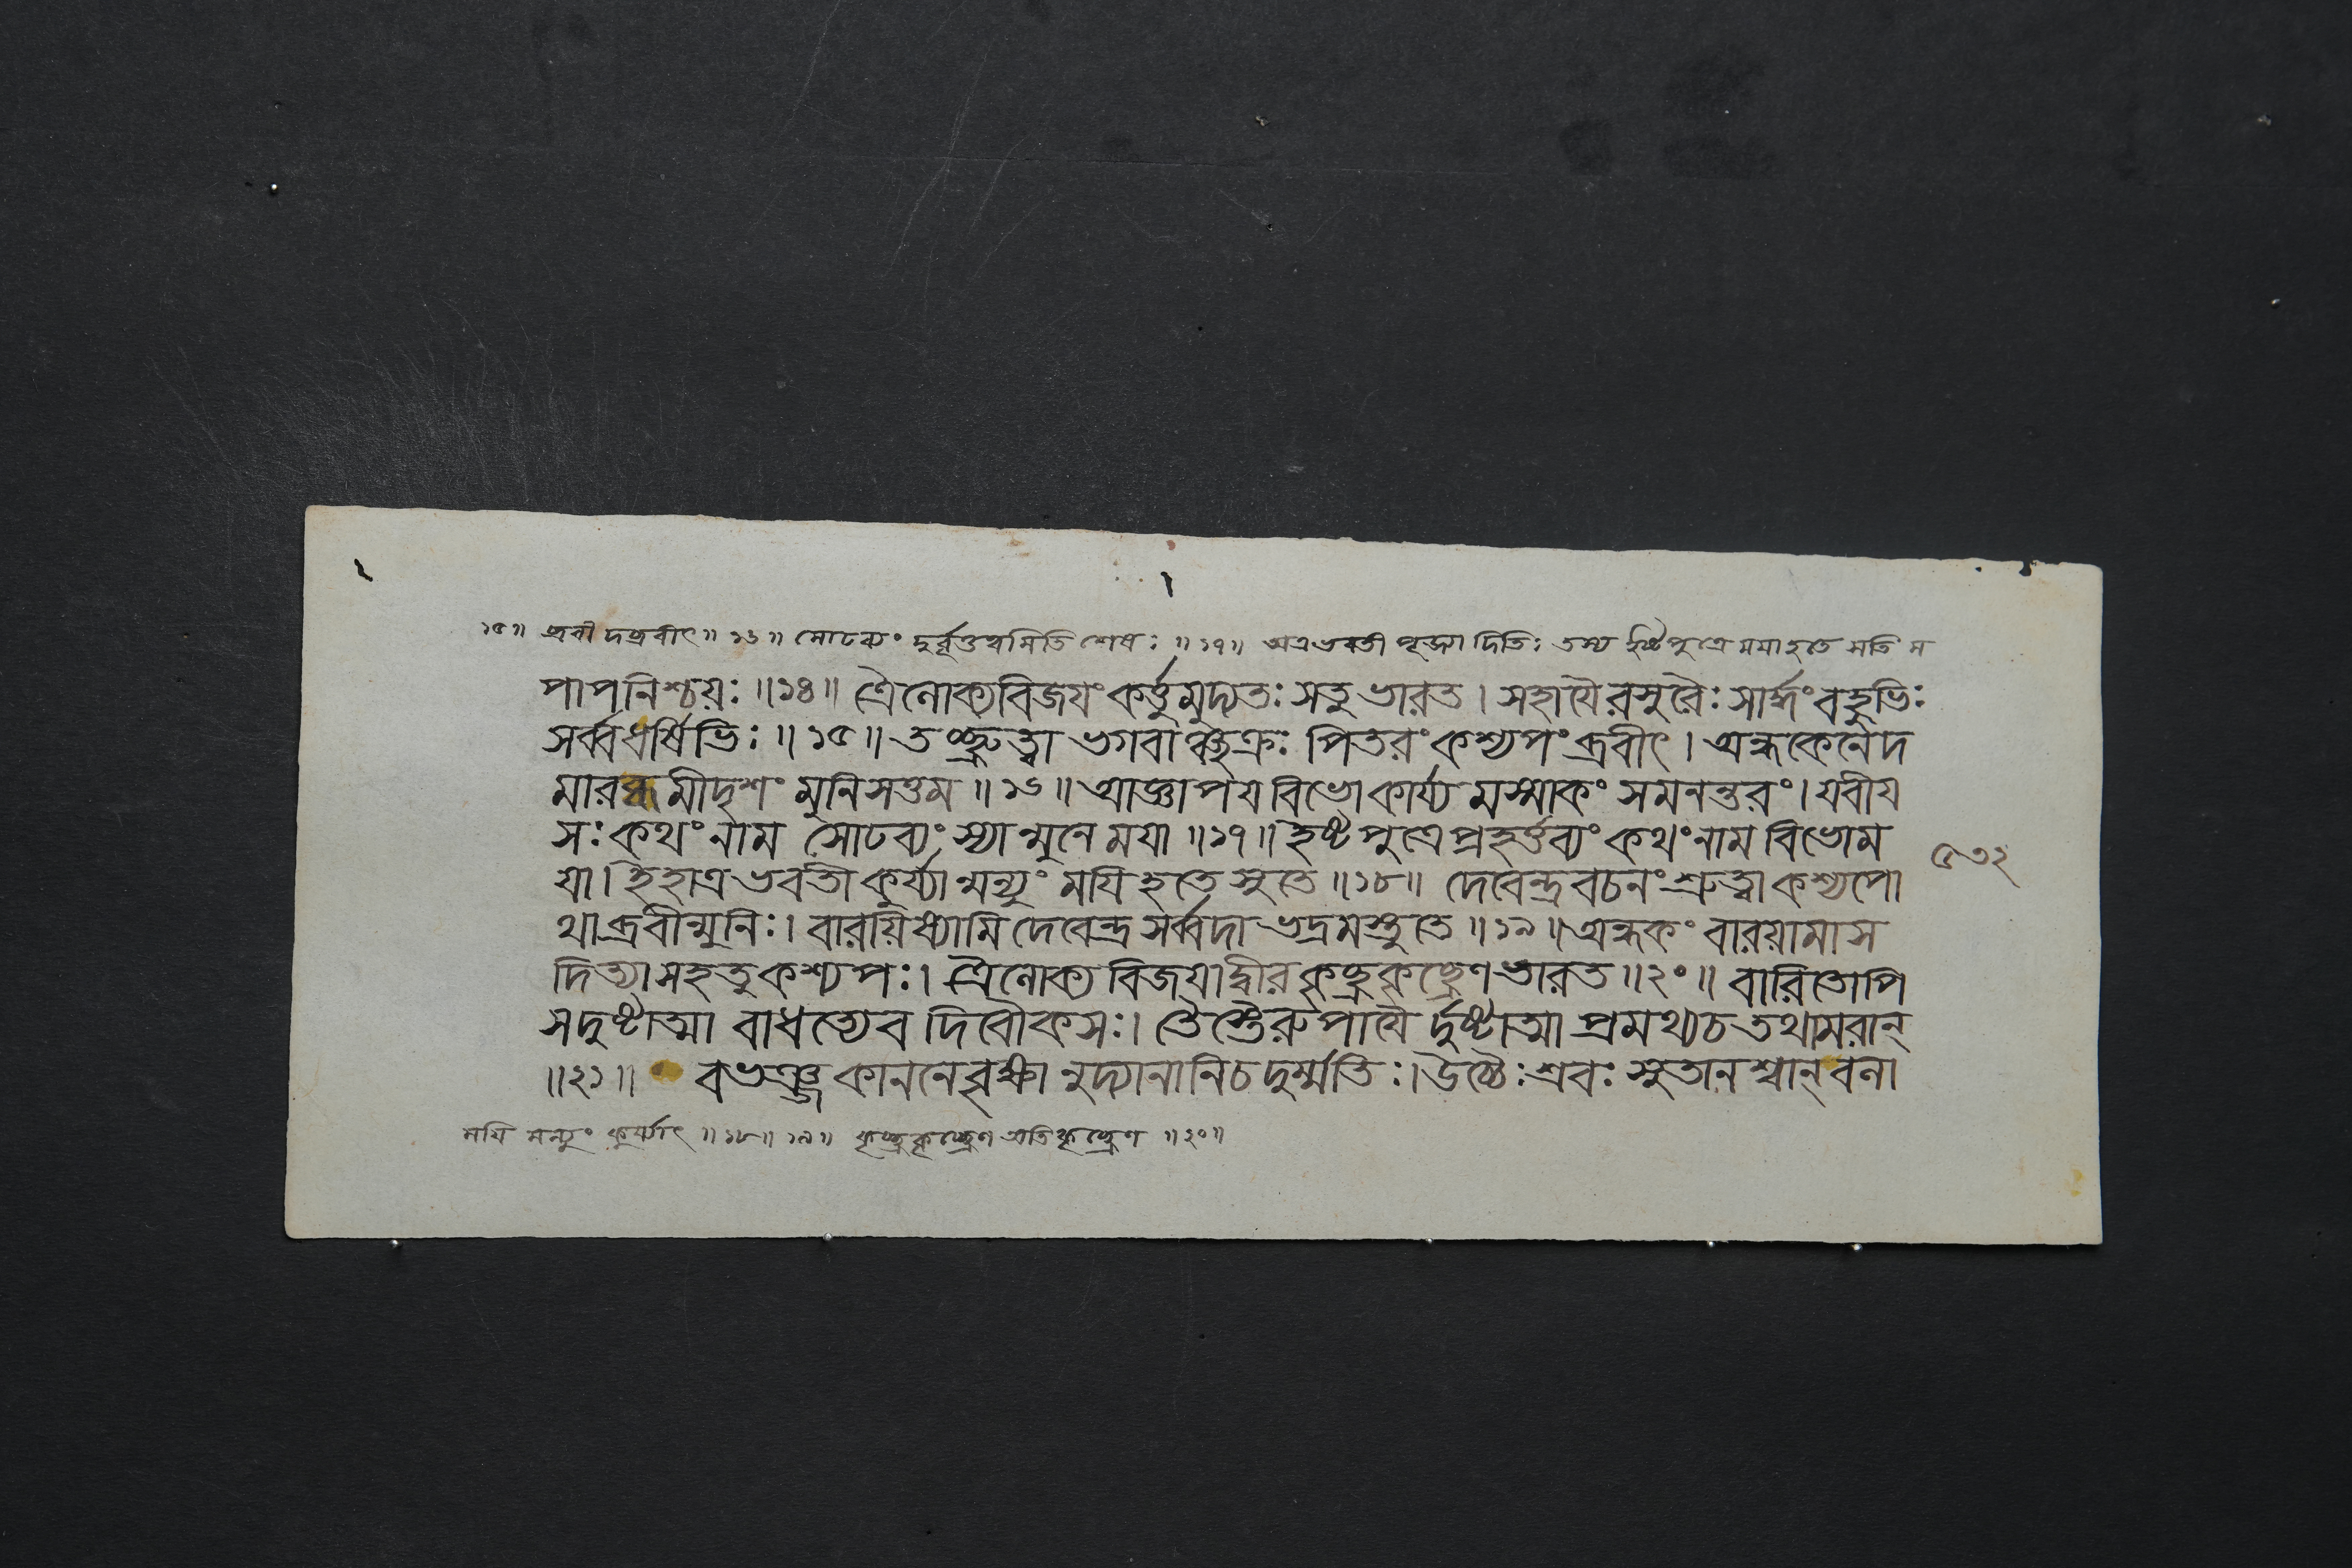 ১৫॥ ব্রবীদব্রবীৎ॥১৬॥ সোঢব্যং দুর্বৃত্তত্বমিতি শেষঃ॥১৭॥ অত্রভবতী পূজ্যা দিতিঃ তস্য ইষ্টপুত্রে ময়া হতে সতি ম
পাপনিশ্চয়ঃ॥১৪॥ ত্রৈলোক্যবিজযং কর্ত্তুমুদ্যতঃ সতু ভারত। সহাযৈরসুরৈঃ সার্দ্ধং বহুভিঃ
সর্ব্বধর্ষিভিঃ॥১৫॥ তচ্ছ্রুত্বা ভগবাঞ্চ্ছক্রঃ পিতরং কশ্যপং ব্রবীৎ। অন্ধকেনেদ
মারব্ধমীদৃশং মুনিসত্তম॥১৬॥ আজ্ঞাপয বিভো কার্য্যমস্মাকং সমনন্তরং। যবীয
সঃ কথং নাম সোঢব্যং স্যান্মুনে ময়া॥১৭॥ ইষ্টপুত্রে প্রহর্ত্তব্যং কথং নাম বিভো ম
যা। ইহাত্রভবতী কুর্য্যান্মন্যুং ময়ি হতে সুতে॥১৮॥ দেবেন্দ্রবচনং শ্রুত্বা কশ্যপো
থাব্রবীন্মুনিঃ। বারয়িষ্যামি দেবেন্দ্র সর্ব্বদা ভদ্রমস্তু তে॥১৯॥ অন্ধকং বারয়ামাস
দিত্যা সহ তু কশ্যপঃ। ত্রৈলোক্যবিজয়াদ্বীর কৃচ্ছ্রকৃচ্ছ্রেণ ভারত॥২০॥ বারিতোপি
স দুষ্টাত্মা বাধত্যেব দিবৌকসঃ। তৈস্তৈরুপাযৈর্দুষ্টাত্মা প্রমথ্য চ তথামরান্
॥২১॥ বভঞ্জ কাননে বৃক্ষানুদ্যানানি চ দুর্ম্মতিঃ। উচ্চৈঃশ্রবঃ সুতানশ্বান্ বলা
৫৩২
ময়ি মন্যুং কুর্য্যাৎ॥১৮॥১৯॥ কৃচ্ছ্রকৃচ্ছ্রেণ অতিকৃচ্ছ্রেণ॥২০॥